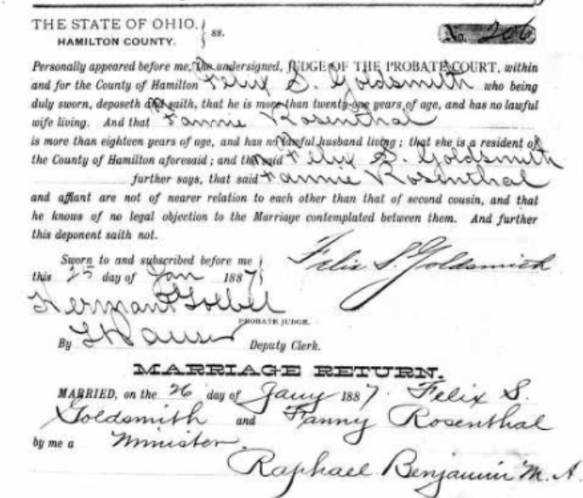 THE STATE OF OHIO, } ss.
HAMILTON COUNTY.
No. 206
Personally appeared before me, the undersigned, JUDGE OF THE PROBATE COURT, within
and for the County of Hamilton Felix S. Goldsmith who being
duly sworn, deposeth and saith, that he is more than twenty-one years of age, and has no lawful
wife living. And that Fannie Rosenthal
is more than eighteen years of age, and has no lawful husband living; that she is a resident of
the County of Hamilton aforesaid; and the said Felix S. Goldsmith
further says, that said Fannie Rosenthal
and affiant are not of nearer relation to each other than that of second cousin, and that
he knows of no legal objection to the Marriage contemplated between them. And further
this deponent saith not.
Sworn to and subscribed before me
this 25 day of Jan 1887
Felix S. Goldsmith
Herman P Goebel
PROBATE JUDGE.
By Deputy Clerk.
MARRIAGE RETURN.
MARRIED, on the 26 day of Jany 1887. Felix S.
Goldsmith and Fanny Rosenthal
by me a Minister
Raphael Benjamin M. A.